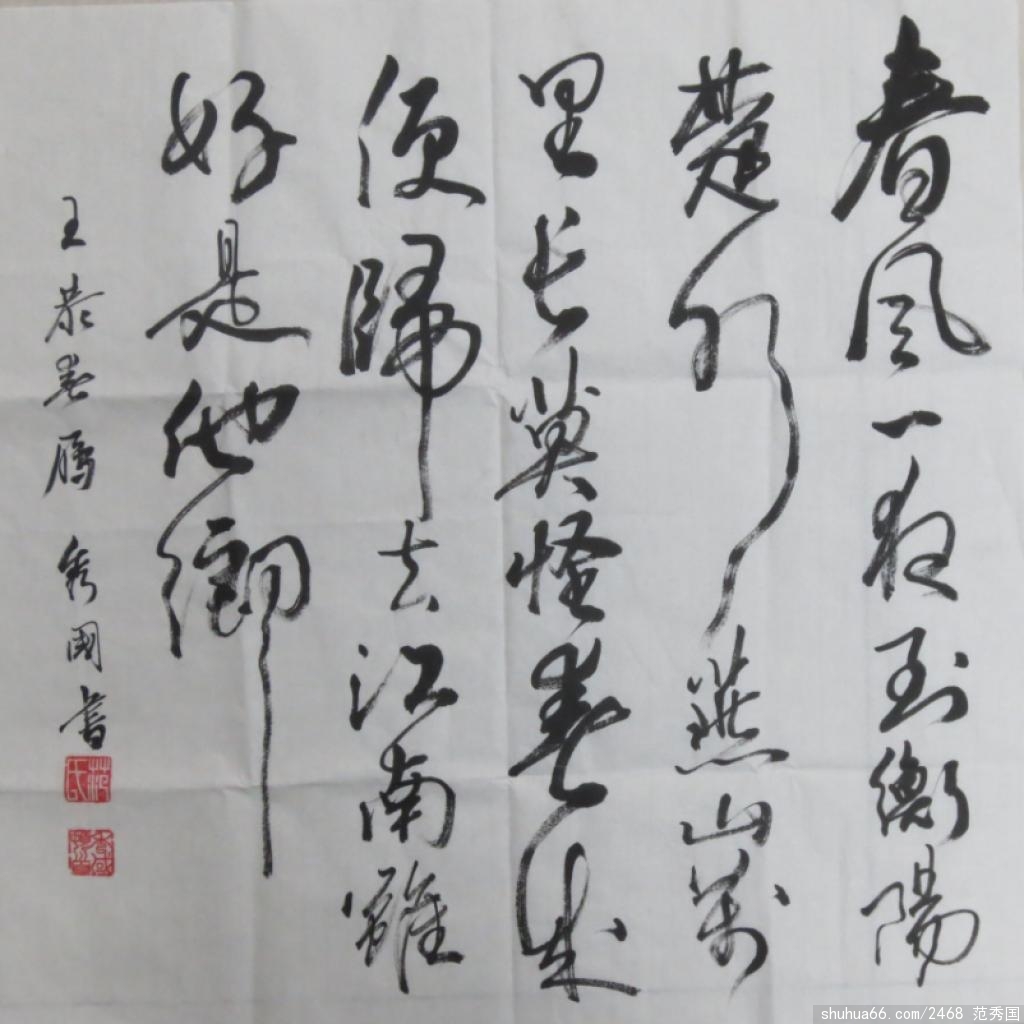 春風一夜到衡陽
楚水燕山萬
里長莫怪春來
便歸去江南雖
好是他鄉
王恭春雁 秀國書
范氏
shuhua66.com/2468 范秀国